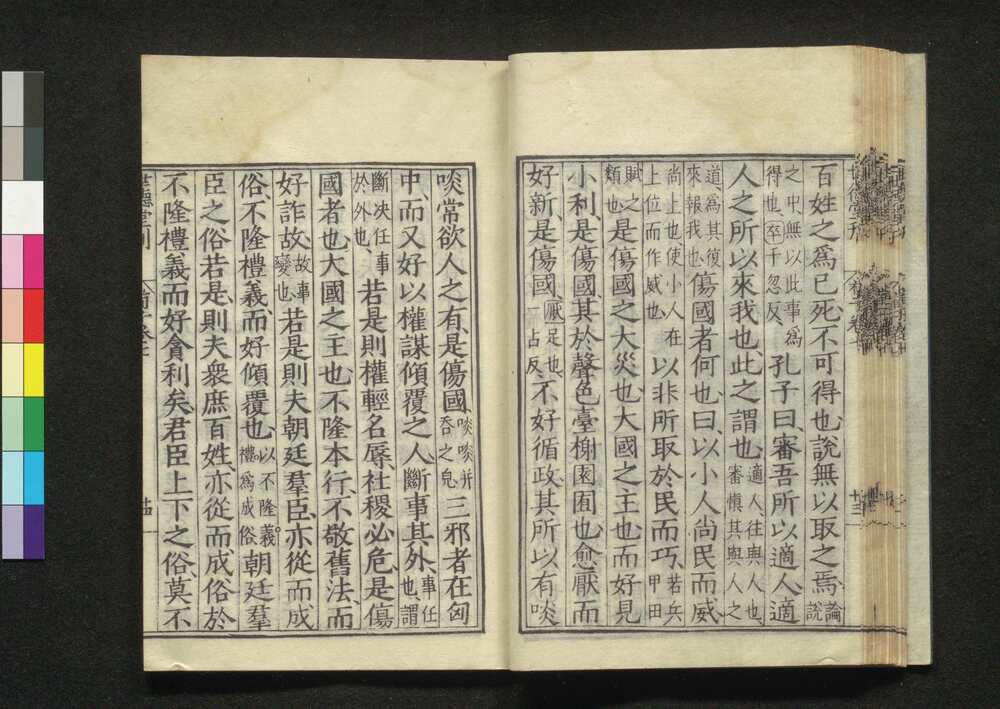 百姓之爲已死不可得也說無以取之焉論說
之中無以此事爲得也卒千忽反孔子曰審吾所以適人適
人之所以來我也此之謂也適人往與人也審慎其與人之
道爲其復來報我也傷國者何也曰以小人尚民而威
尚上也使小人在上位而作威也以非所取於民而巧若兵甲田
賦之類也是傷國之大災也大國之主也而好見
小利是傷國其於聲色臺榭園囿也愈厭而
好新是傷國厭足也一占反不好循政其所以有啖
啖常欲人之有是傷國啖啖并吞之皃三邪者在匈
中而又好以權謀傾覆之人斷事其外事任也謂
斷决任事於外也若是則權輕名辱社稷必危是傷
國者也大國之主也不隆本行不敬舊法而
好詐故故事變也若是則夫朝廷羣臣亦從而成
俗不隆禮義而好傾覆也以不隆義禮爲成俗朝廷羣
臣之俗若是則夫衆庶百姓亦從而成俗於
不隆禮義而好貪利矣君臣上下之俗莫不